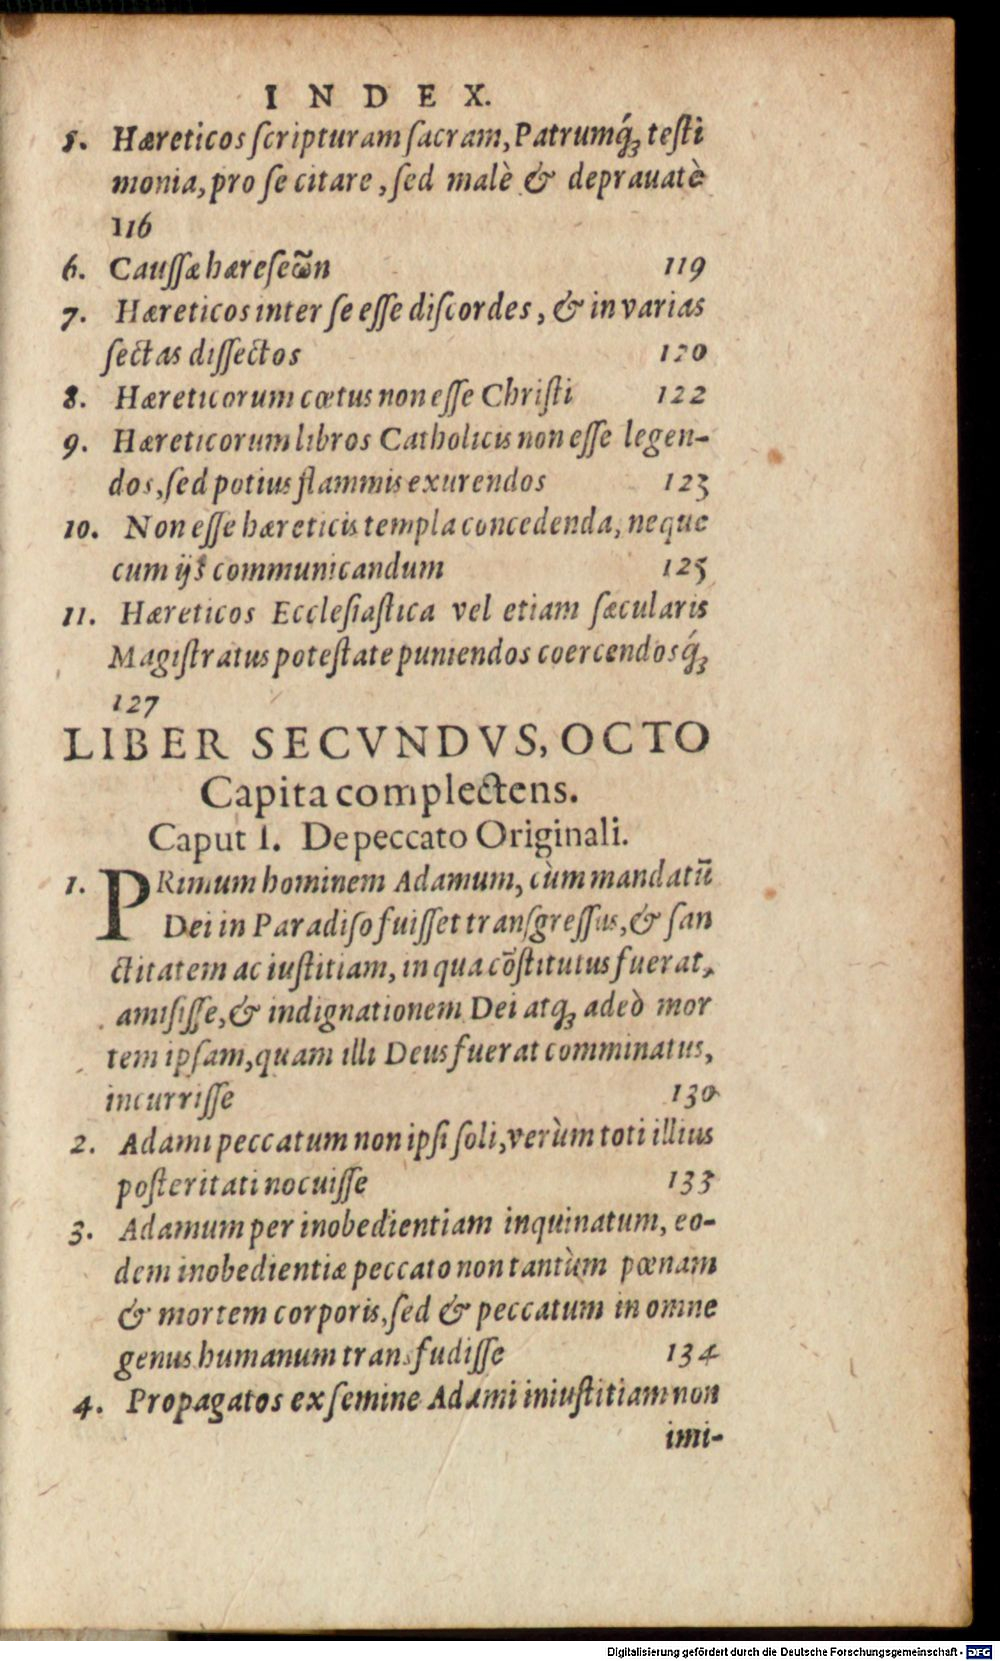 INDEX.
5. Hæreticos ſcripturam ſacram, Patrumq́; teſti
monia, pro ſe citare, ſed malè & deprauatè
116
6. Cauſſæ hæreſeω̃n 119
7. Hæreticos inter ſe eſſe diſcordes, & in varias
ſectas diſſectos 120
8. Hæreticorum cœtus non eſſe Chriſti 122
9. Hæreticorum libros Catholicis non eſſe legen-
dos, ſed potius flammis exurendos 123
10. Non eſſe hæreticis templa concedenda, neque
cum ijs communicandum 125
11. Hæreticos Eccleſiaſtica vel etiam ſæcularis
Magiſtratus poteſtate puniendos coercendosq́;
127
LIBER SECVNDVS, OCTO
Capita complectens.
Caput 1. De peccato Originali.
1. PRimum hominem Adamum, cùm mandatū
Dei in Paradiſo fuiſſet tranſgreſſus, & ſan
ctitatem ac iuſtitiam, in qua cõſtitutus fuerat,
amiſiſſe, & indignationem Dei atq; adeò mor
tem ipſam, quam illi Deus fuerat comminatus,
incurriſſe 130
2. Adami peccatum non ipſi ſoli, verùm toti illius
poſteritati nocuiſſe 133
3. Adamum per inobedientiam inquinatum, eo-
dem inobedientiæ peccato non tantùm pœnam
& mortem corporis, ſed & peccatum in omne
genus humanum transfudiſſe 134
4. Propagatos ex ſemine Adami iniuſtitiam non
imi-
Digitalisierung gefördert durch die Deutsche Forschungsgemeinschaft - DFG